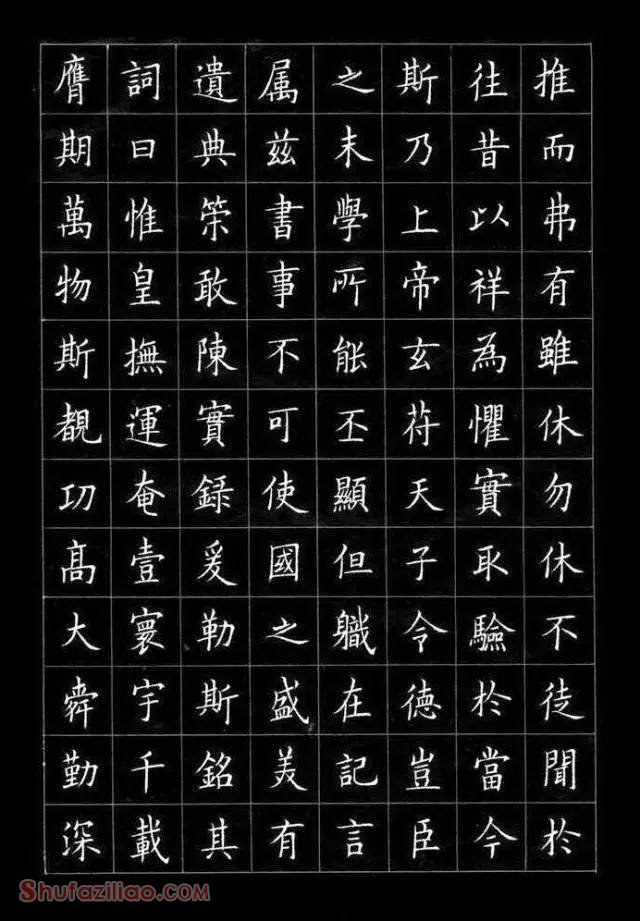 推而弗有雖休勿休不徒聞於
往昔以祥為懼實取驗於當今
斯乃上帝玄苻天子令德豈臣
之末學所能丕顯但職在記言
属茲書事不可使國之盛美有
遺典策敢陳實録爰勒斯銘其
詞曰惟皇撫運奄壹寰宇千載
膺期萬物斯覩功高大舜勤深
Shufaziliao.COM